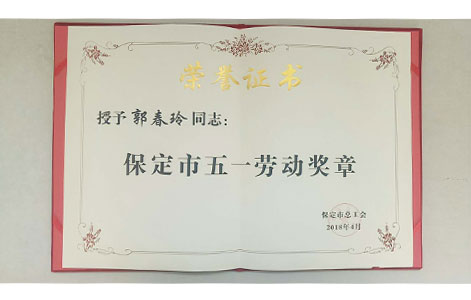 荣誉证书
授予郭春玲同志：
保定市五一劳动奖章
保定市总工会
2018年4月